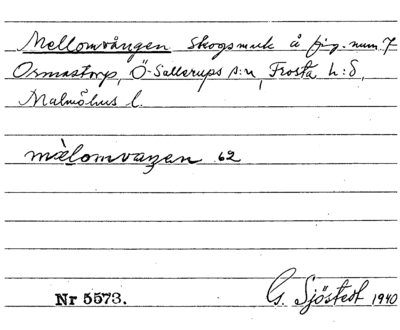 Mellomvången skogsmark å fig. num. 7
Ormastorp, Ö-Sallerups s:n, Frosta h:d,
Malmöhus l.
mælomvaŋen 62
Nr 5573.
G. Sjöstedt 1940